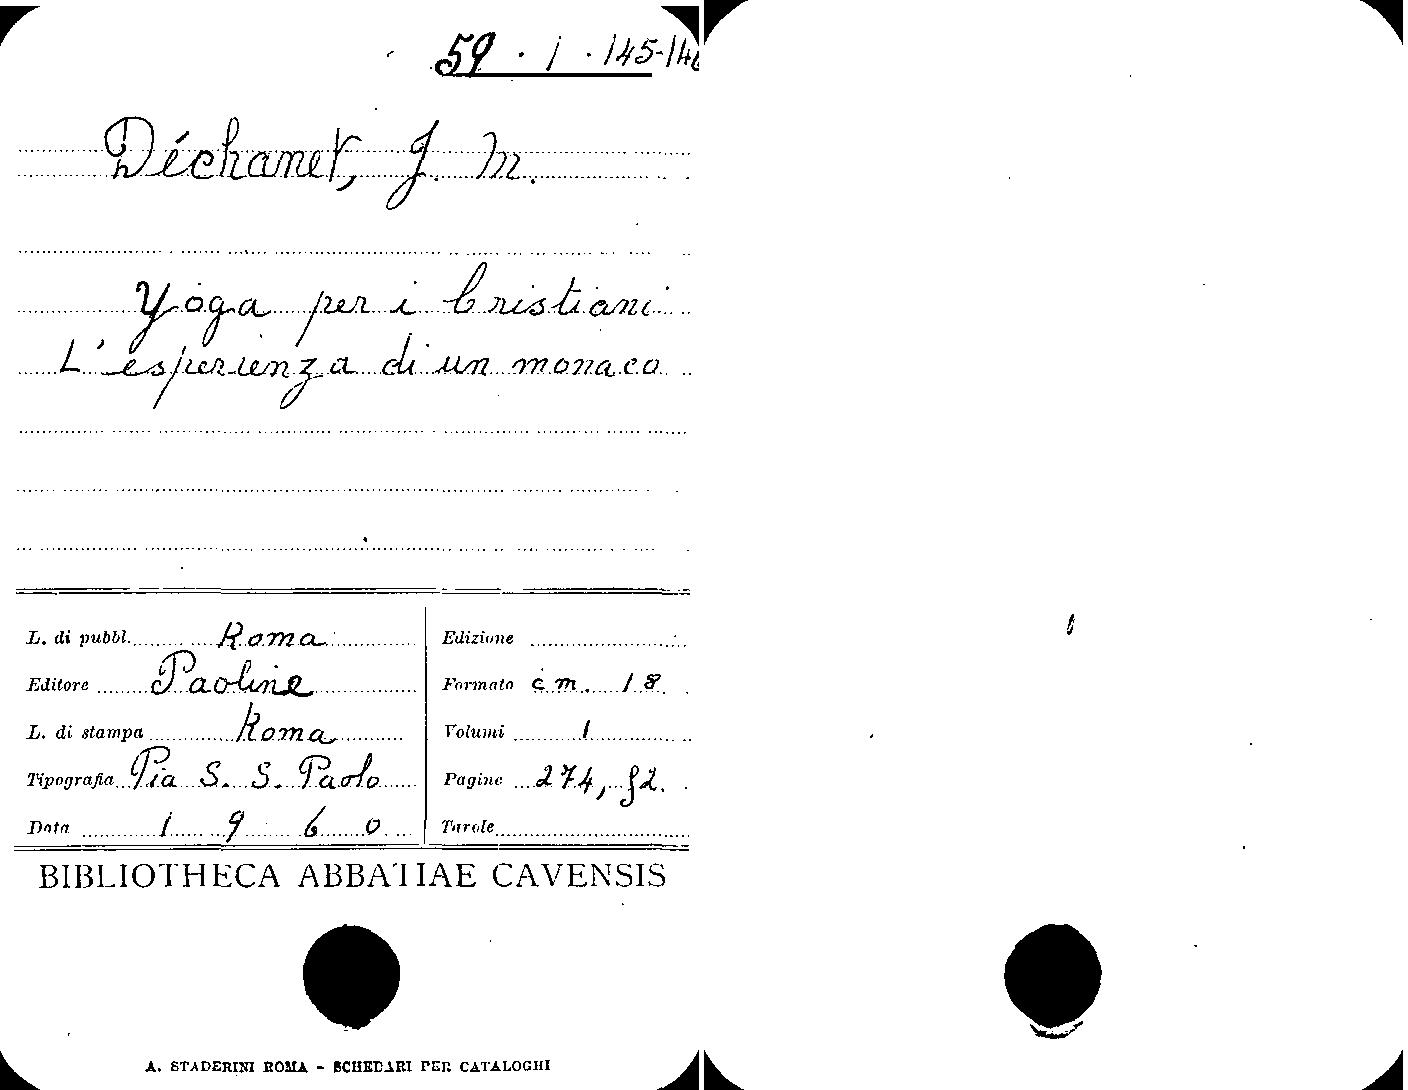 59 · 1 · 145-146
Déchanet, J. M.
Yoga per i Cristiani
L'esperienza di un monaco
L. di pubbl. Roma
Editore Paoline
L. di stampa Roma
Tipografia Pia S. S. Paolo
Data 1960
Edizione
Formato cm. 18
Volumi 1
Pagine 274, f2.
Tavole
BIBLIOTHECA ABBATIAE CAVENSIS
A. STADERINI ROMA - SCHEDARI PER CATALOGHI